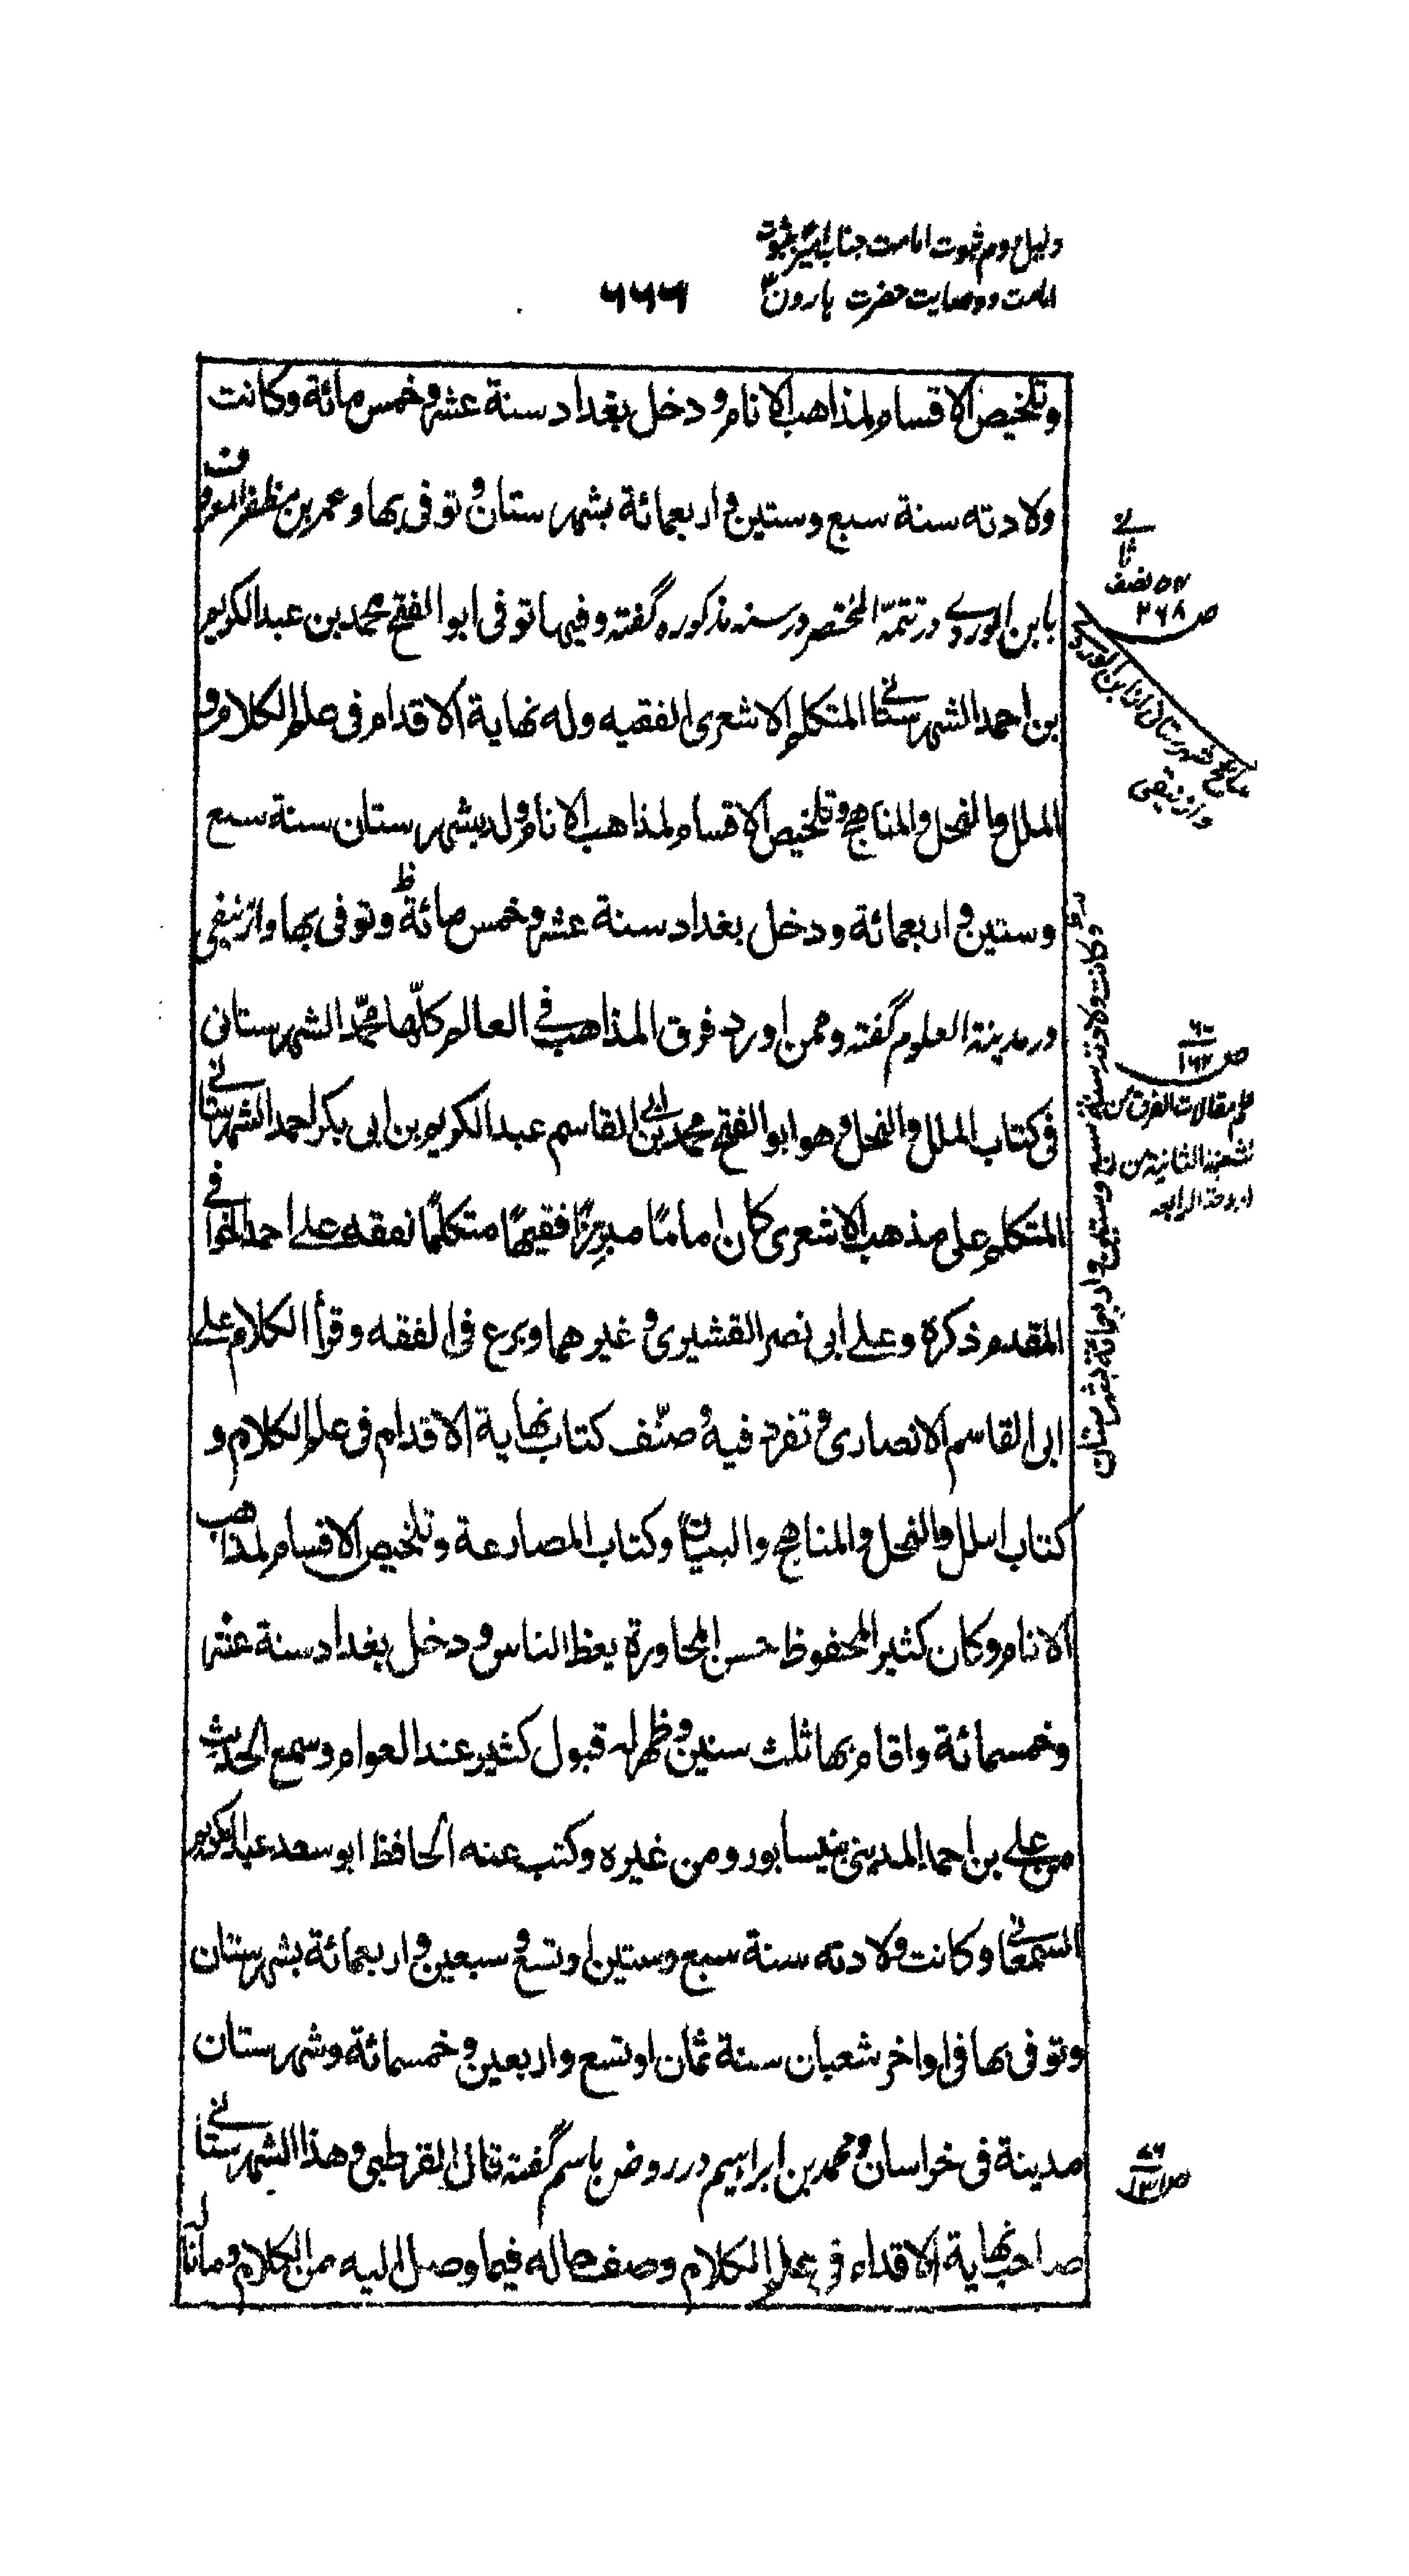 دلیل دوم ثبوت امامت جناب امیر بثبوت
امامت و وصایت حضرت هارون
۶۶۶
وتلخیص الاقسام لمذاهب الانام و دخل بغداد سنة عشر وخمس مائة وکانت
ولادته سنة سبع وستین و اربعمائة بشهرستان و توفی بها وعمر بن مظفر المعروف
بابن الوردی در تتمّة المختصر در سنه مذکوره گفته وفیها توفی ابو الفتح محمد بن عبد الکریم
بن احمد الشهرستانی المتکلم الاشعری الفقیه وله نهایة الاقدام فی علم الکلام و
الملل والنحل والمناهج وتلخیص الاقسام لمذاهب الانام ولد بشهرستان سنة سبع
وستین و اربعمائة ودخل بغداد سنة عشر وخمس مائة وتوفی بها وازنیقی
در مدینة العلوم گفته وممن اورد فرق المذاهب فی العالم کلّها محمّد الشهرستانی
فی کتاب الملل والنحل وهو ابو الفتح محمد بن ابی القاسم عبد الکریم بن ابی بکر احمد الشهرستانی
المتکلم علی مذهب الاشعری کان اماماً مبرزاً فقیهاً متکلماً تفقه علی احمد الخوافی
المقدم ذکره وعلی ابی نصر القشیری و غیرهما وبرع فی الفقه وقرأ الکلام علی
ابی القاسم الانصاری وتفرد فیه وصنّف کتاب نهایة الاقدام فی علم الکلام و
کتاب الملل والنحل والمناهج والبیان وکتاب المصارعة وتلخیص الاقسام لمذاهب
الانام وکان کثیر المحفوظ حسن المحاورة یعظ الناس ودخل بغداد سنة عشر
وخمسمائة واقام بها ثلث سنین وظهر له قبول کثیر عند العوام وسمع الحدیث
من علی بن احمد المدینی بنیسابور ومن غیره وکتب عنه الحافظ ابو سعد عبد الکریم
السمعانی وکانت ولادته سنة سبع وستین او تسع و سبعین و اربعمائة بشهرستان
وتوفی بها فی اواخر شعبان سنة ثمان او تسع واربعین وخمسمائة وشهرستان
مدینة فی خراسان ومحمد بن ابراهیم در روض باسم گفته قال القرطبی وهذا الشهرستانی
صاحب نهایة الاقدام فی علم الکلام وصف حاله فیما وصل الیه من الکلام وما ناله
نصف ثانی
ص ۳۶۸
وازنیقی
ص ۱۶۲
علم مقالات الفرق من
الشعبة الثانیة من
الدوحة الرابعة
وکانت ولادته سنة سبع وستین واربعمائة بشهرستان